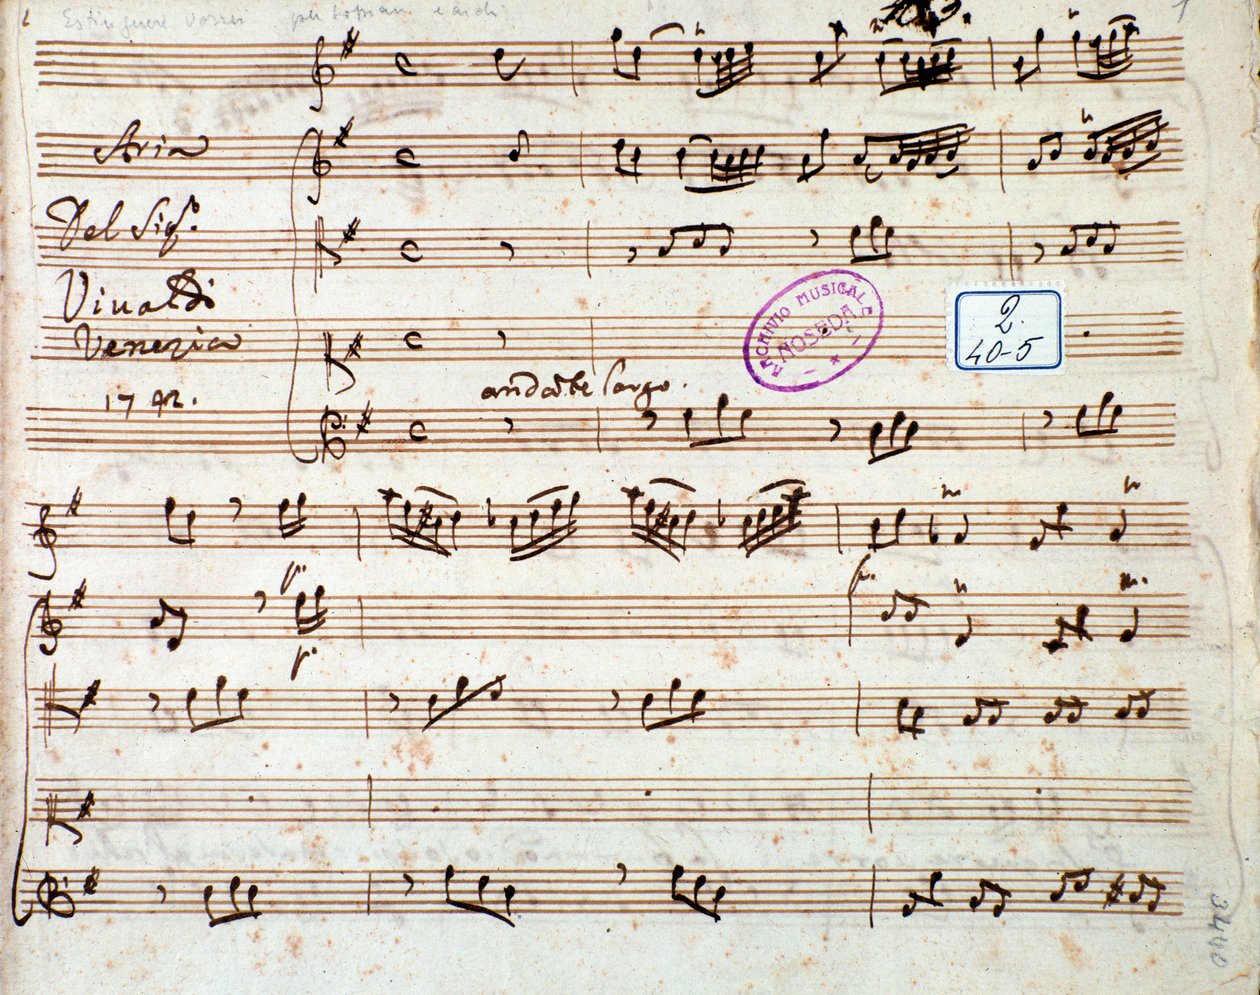 Estinguere vorrei per soprano e archi
1
Aria
Del Sigr.
Vivaldi
Venezia
17
andāte largo.
ARCHIVIO MUSICALE
NOSEDA
2.
40-5
p.